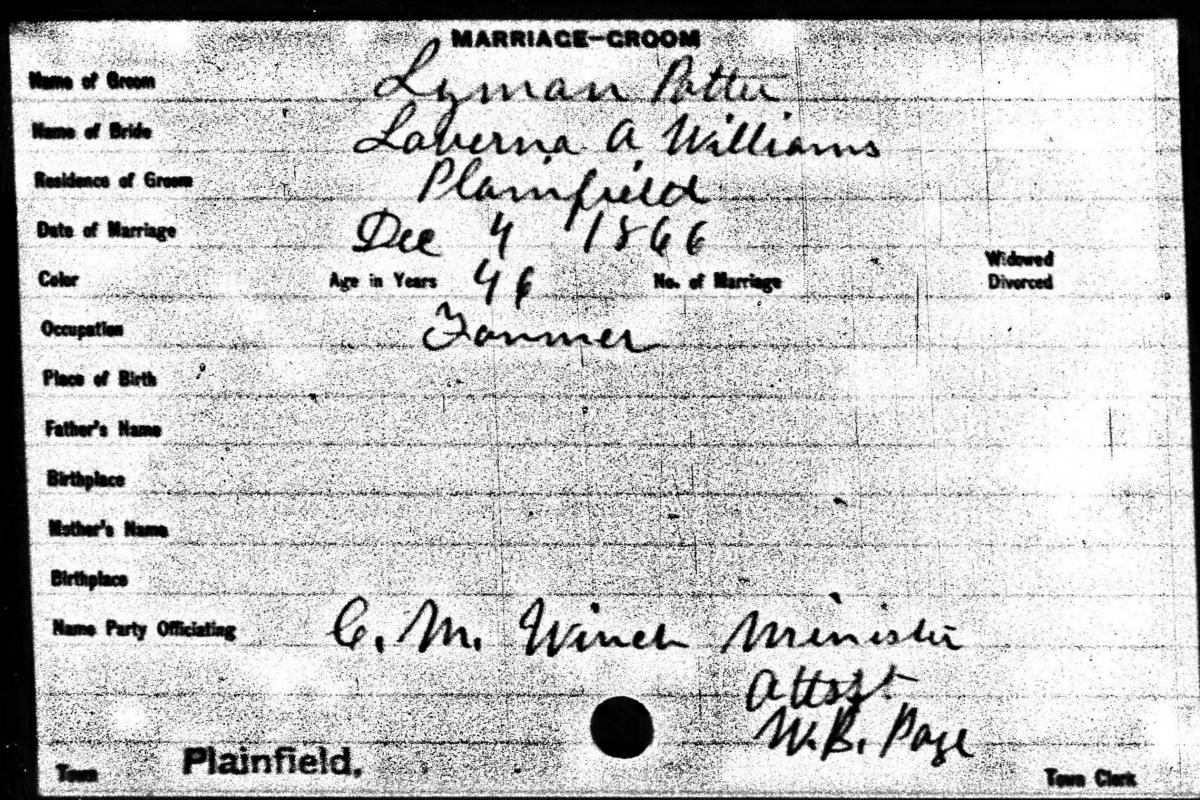 MARRIAGE-GROOM
Name of Groom Lyman Potter
Name of Bride Laverna A Williams
Residence of Groom Plainfield
Date of Marriage Dec 4 1866
Widowed
Color Age in Years 46 No. of Marriage Divorced
Occupation Farmer
Place of Birth
Father's Name
Birthplace
Mother's Name
Birthplace
Name Party Officiating C. M. Winch Minister
Attest
W. B. Page
Town Plainfield, Town Clerk